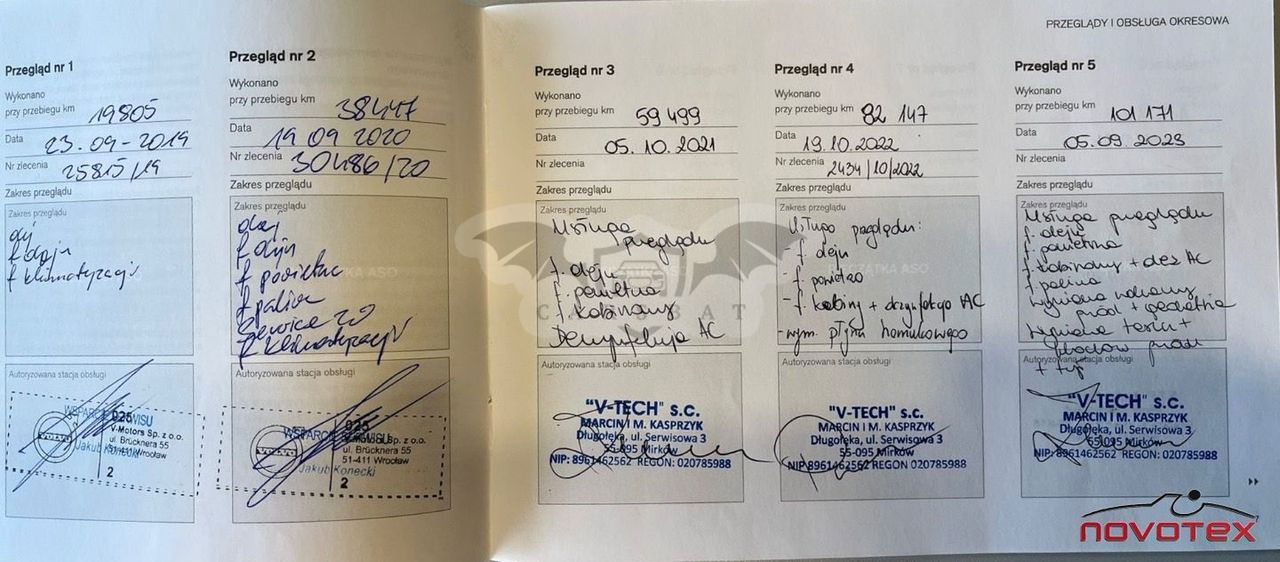 PRZEGLĄDY I OBSŁUGA OKRESOWA
Przegląd nr 1
Wykonano
przy przebiegu km 19805
Data 23.09-2019
Nr zlecenia 25815/19
Zakres przeglądu
Zakres przeglądu
olej
f oleju
f klimatyzacji
Autoryzowana stacja obsługi
WSPARCIE SERWISU
025
VOLVO
V-Motors Sp. z o.o.
ul. Brücknera 55
51-411 Wrocław
Jakub Konecki
2
Przegląd nr 2
Wykonano
przy przebiegu km 38447
Data 19 09 2020
Nr zlecenia 30486/20
Zakres przeglądu
Zakres przeglądu
olej
f oleju
f powietrza
f paliwa
Service 20
f klimatyzacji
Autoryzowana stacja obsługi
WSPARCIE SERWISU
025
VOLVO
V-Motors Sp. z o.o.
ul. Brücknera 55
51-411 Wrocław
Jakub Konecki
2
Przegląd nr 3
Wykonano
przy przebiegu km 59 499
Data 05.10.2021
Nr zlecenia
Zakres przeglądu
Zakres przeglądu
Usługa
przeglądu
f. oleju
f. powietrza
f. kabinowy
Dezynfekcja AC
Autoryzowana stacja obsługi
"V-TECH" s.c.
MARCIN I M. KASPRZYK
Długołęka, ul. Serwisowa 3
55-095 Mirków
NIP: 8961462562 REGON: 020785988
Przegląd nr 4
Wykonano
przy przebiegu km 82 147
Data 19.10.2022
Nr zlecenia 2434/10/2022
Zakres przeglądu
Zakres przeglądu
Usługa przeglądu:
- f. oleju
- f. powietrza
- f. kabiny + dezynfekcja AC
- wym. płynu hamulcowego
Autoryzowana stacja obsługi
"V-TECH" s.c.
MARCIN I M. KASPRZYK
Długołęka, ul. Serwisowa 3
55-095 Mirków
NIP 8961462562 REGON: 020785988
Przegląd nr 5
Wykonano
przy przebiegu km 101 171
Data 05.09.2023
Nr zlecenia
Zakres przeglądu
Zakres przeglądu
Usługa przeglądu
f. oleju
f. powietrza
f. kabinowy + dez AC
f. paliwa
wymiana wahaczy
przód + geometria
wymiana tarcz +
klocków przód
+ tył
Autoryzowana stacja obsługi
"V-TECH" s.c.
MARCIN I M. KASPRZYK
Długołęka, ul. Serwisowa 3
55-095 Mirków
NIP: 8961462562 REGON: 020785988
CARSBAT
NOVOTEX